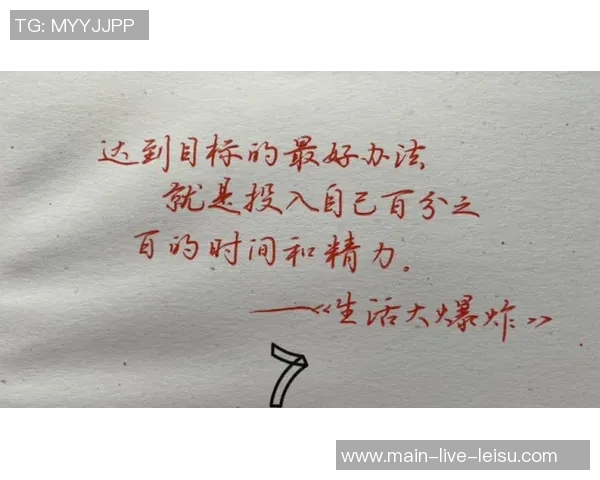 TG: MYYJJPP
达到目标的最好办法
就是投入自己百分之
百的时间和精力。
——《生活大爆炸》
7
www.main-live-leisu.com